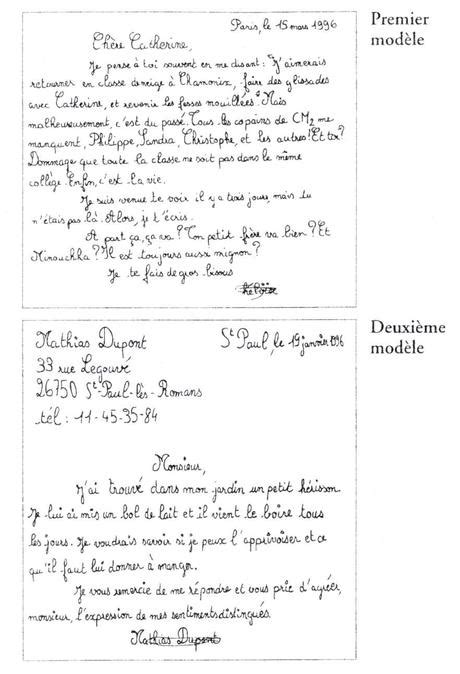 Premier
modèle
Paris, le 15 mars 1996
Chère Catherine,
Je pense à toi souvent en me disant : "J'aimerais
retourner en classe de neige à Chamonix, faire des glissades
avec Catherine, et revenir les fesses mouillées". Mais
malheureusement, c'est du passé. Tous les copains de CM2 me
manquent, Philippe, Sandra, Christophe, et les autres! Et toi?
Dommage que toute la classe ne soit pas dans le même
collège. Enfin, c'est la vie.
Je suis venue te voir il y a trois jours, mais tu
n'étais pas là. Alors, je t'écris.
A part ça, ça va? Ton petit frère va bien? Et
Minouchka? Il est toujours aussi mignon?
Je te fais de gros bisous
Héloïse
Deuxième
modèle
Mathias Dupont
St Paul, le 19 janvier 1996
33 rue Legouvé
26750 St-Paul-lès-Romans
tél : 11-45-35-84
Monsieur,
J'ai trouvé dans mon jardin un petit hérisson.
Je lui ai mis un bol de lait et il vient le boire tous
les jours. Je voudrais savoir si je peux l'apprivoiser et ce
qu'il faut lui donner à manger.
Je vous remercie de me répondre et vous prie d'agréer,
monsieur, l'expression de mes sentiments distingués.
Mathias Dupont